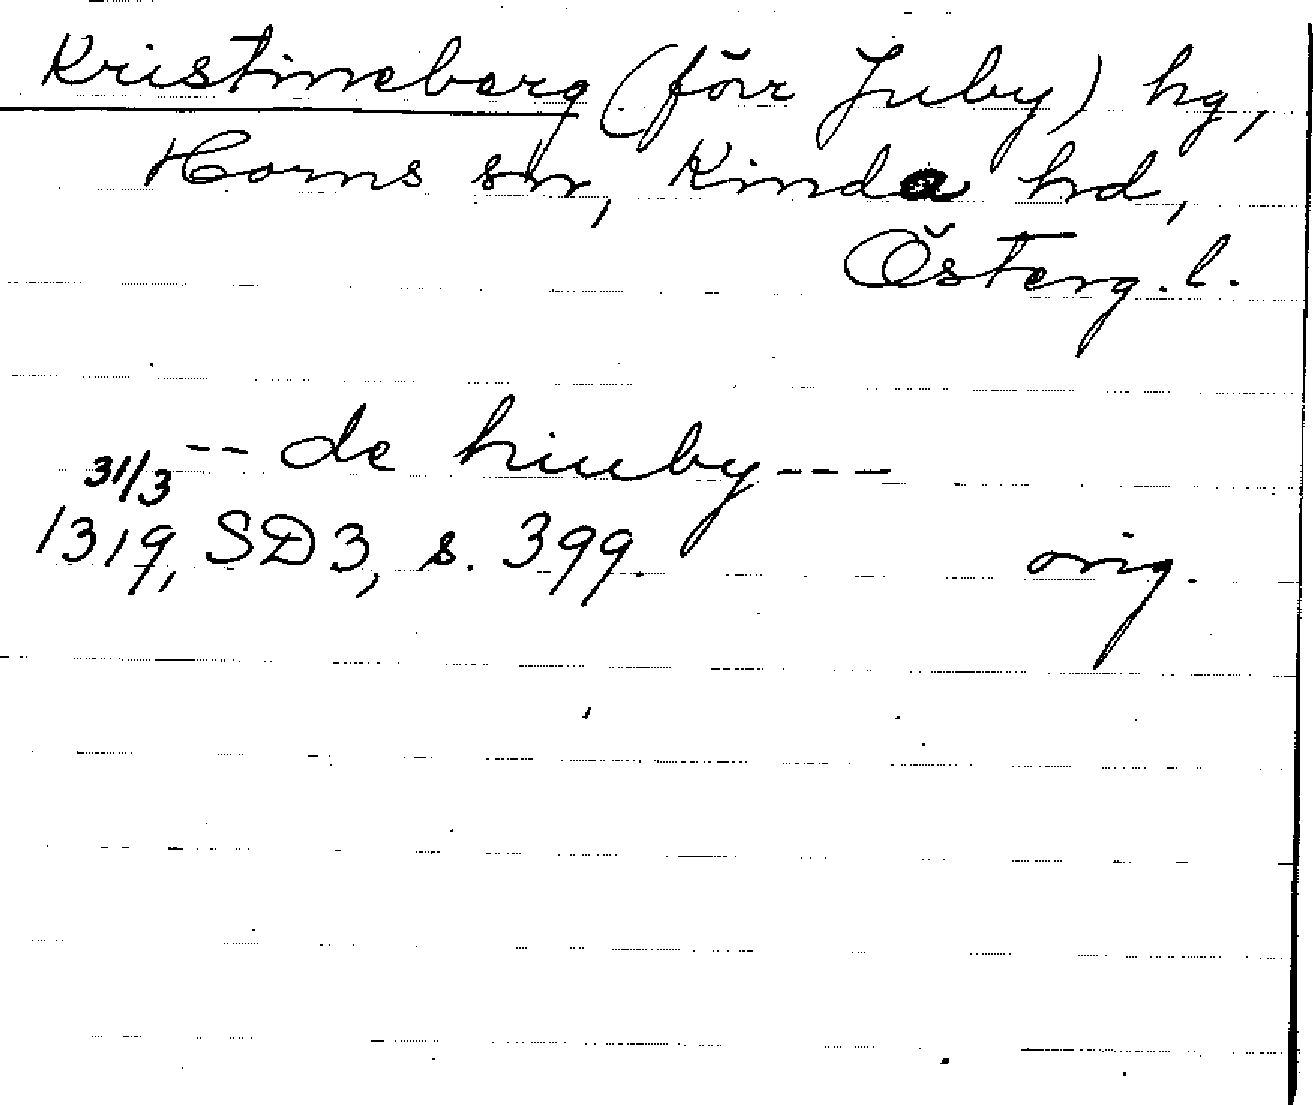 Kristineberg (förr Juby) hg,
Horns sn, Kinda hd,
Österg. l.
-- de hiuby ---
31/3
1319, SD3, s. 399. orig.